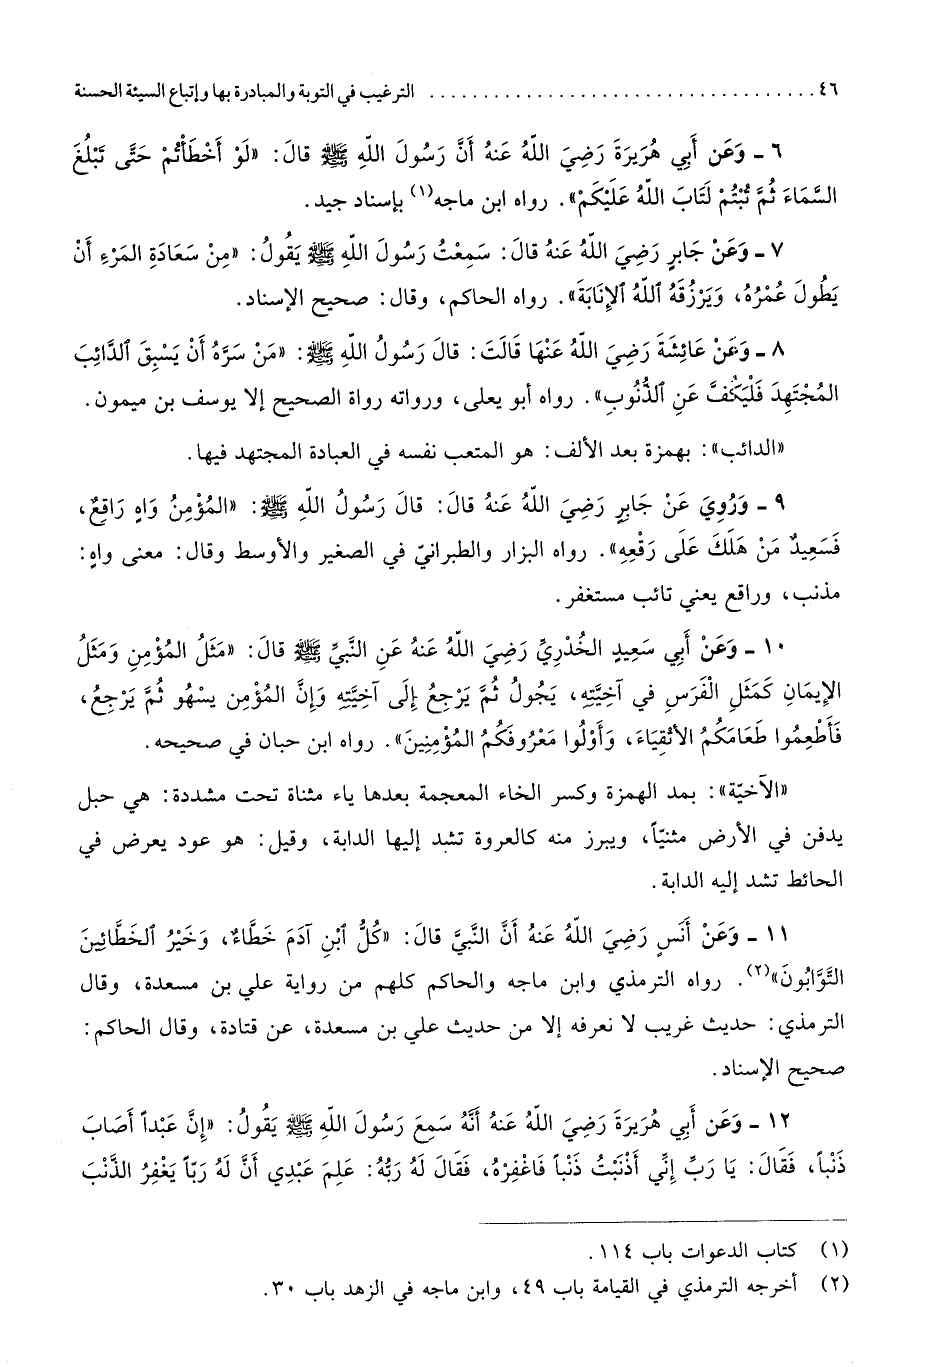 ٤٦ ..................................... الترغيب في التوبة والمبادرة بها وإتباع السيئة الحسنة
٦ ـ وَعَن أَبِي هُرَيرَةَ رَضِيَ اللّهُ عَنهُ أَنَّ رَسُولَ اللّهِ ﷺ قالَ: «لَوْ أَخْطَأْتُمْ حَتَّى تَبْلُغَ
السَّمَاءَ ثُمَّ تُبْتُمْ لَتَابَ اللّهُ عَلَيْكُمْ». رواه ابن ماجه(١) بإسناد جيد.
٧ ـ وَعَنْ جَابِرٍ رَضِيَ اللّهُ عَنهُ قالَ: سَمِعْتُ رَسُولَ اللّهِ ﷺ يَقُولُ: «مِنْ سَعَادَةِ المَرْءِ أَنْ
يَطُولَ عُمْرُهُ، وَيَرْزُقَهُ ٱللّهُ ٱلإِنَابَةَ». رواه الحاكم، وقال: صحيح الإسناد.
٨ ـ وَعَنْ عَائِشَةَ رَضِيَ اللّهُ عَنْهَا قَالَتَ: قالَ رَسُولُ اللّهِ ﷺ: «مَنْ سَرَّهُ أَنْ يَسْبِقَ ٱلدَّائِبَ
المُجْتَهِدَ فَلْيَكُفَّ عَنِ ٱلذُّنُوبِ». رواه أبو يعلى، ورواته رواة الصحيح إلا يوسف بن ميمون.
«الدائب»: بهمزة بعد الألف: هو المتعب نفسه في العبادة المجتهد فيها.
٩ ـ وَرُوِيَ عَنْ جَابِرٍ رَضِيَ اللّهُ عَنهُ قالَ: قالَ رَسُولُ اللّهِ ﷺ: «المُؤْمِنُ وَاهٍ رَاقِعٌ،
فَسَعِيدٌ مَنْ هَلَكَ عَلَى رَقْعِهِ». رواه البزار والطبرانيّ في الصغير والأوسط وقال: معنى واهٍ:
مذنب، وراقع يعني تائب مستغفر.
١٠ ـ وَعَنْ أَبِي سَعِيدٍ الخُدْرِيِّ رَضِيَ اللّهُ عَنهُ عَنِ النَّبِيِّ ﷺ قالَ: «مَثَلُ المُؤْمِنِ وَمَثَلُ
الإِيمَانِ كَمَثَلِ الْفَرَسِ في آخِيَّتِهِ، يَجُولُ ثُمَّ يَرْجِعُ إِلَى آخِيَّتِهِ وَإِنَّ المُؤْمِن يسْهُو ثُمَّ يَرْجِعُ،
فَأَطْعِمُوا طَعَامَكُمُ الأتْقِيَاءَ، وَأَوْلُوا مَعْرُوفَكُمُ المُؤْمِنِينَ». رواه ابن حبان في صحيحه.
«الآخيّة»: بمد الهمزة وكسر الخاء المعجمة بعدها ياء مثناة تحت مشددة: هي حبل
يدفن في الأرض مثنيّاً، ويبرز منه كالعروة تشد إليها الدابة، وقيل: هو عود يعرض في
الحائط تشد إليه الدابة.
١١ ـ وَعَنْ أَنَسٍ رَضِيَ اللّهُ عَنهُ أَنَّ النَّبِيَّ قالَ: «كُلُّ ٱبْنِ آدَمَ خَطَّاءٌ، وَخَيْرُ ٱلخَطَّائِينَ
التَّوَّابُونَ»(٢). رواه الترمذي وابن ماجه والحاكم كلهم من رواية علي بن مسعدة، وقال
الترمذي: حديث غريب لا نعرفه إلا من حديث علي بن مسعدة، عن قتادة، وقال الحاكم:
صحيح الإسناد.
١٢ ـ وَعَن أَبِي هُرَيرَةَ رَضِيَ اللّهُ عَنهُ أَنَّهُ سَمِعَ رَسُولَ اللّهِ ﷺ يَقُولُ: «إِنَّ عَبْداً أَصَابَ
ذَنْباً، فَقَالَ: يَا رَبِّ إِنِّي أَذْنَبْتُ ذَنْباً فَاغْفِرْهُ، فَقَالَ لَهُ رَبُّهُ: عَلِمَ عَبْدِي أَنَّ لَهُ رَبّاً يَغْفِرُ الذَّنْبَ
(١) كتاب الدعوات باب ١١٤.
(٢) أخرجه الترمذي في القيامة باب ٤٩، وابن ماجه في الزهد باب ٣٠.